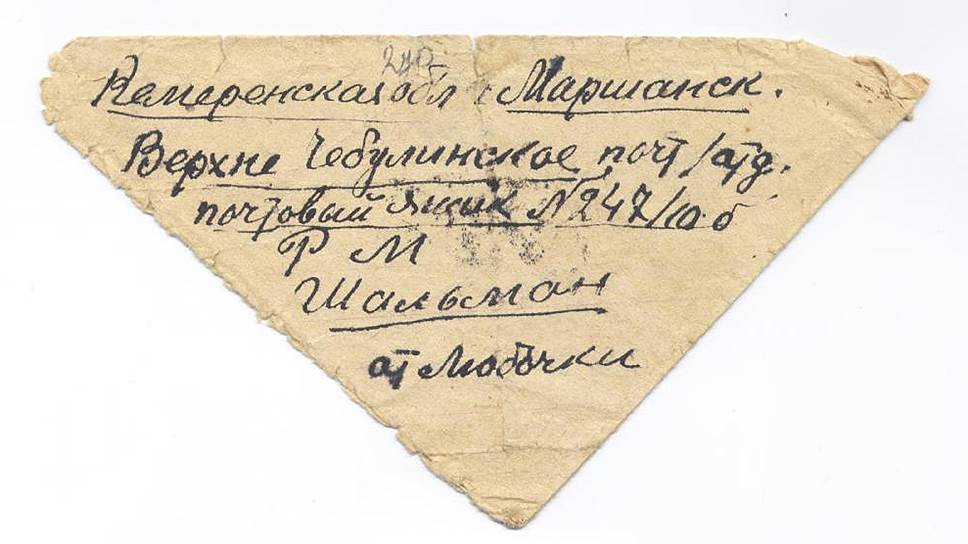 Кемеренская обл. Маршанск.
Верхне Чебулинское почт/атд.
почтовый ящик N 247/10.б
Р М
Шальман
от Любочки